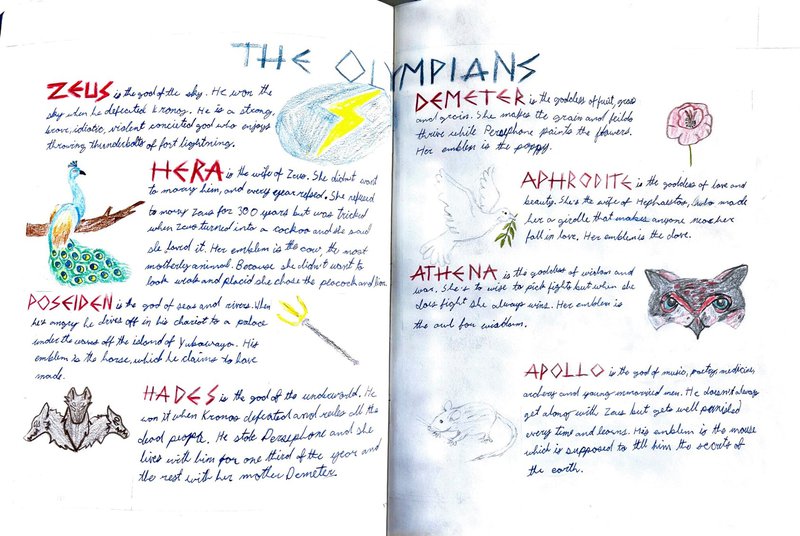 THE OLYMPIANS
ZEUS is the god of the sky. He won the
sky when he defeated Kronos. He is a strong,
brave, idiotic, violent conceited god who enjoys
throwing thunderbolts of fort lightning.
HERA is the wife of Zeus. She didn't want
to marry him, and every year refused. She refused
to marry Zeus for 300 years but was tricked
when Zeus turned into a cockoo and she said
she loved it. Her emblem is the cow, the most
motherly animal. Because she didn't want to
look weak and placid she chose the peacock and lion.
POSEIDEN is the god of seas and rivers. When
he's angry he drives off in his chariot to a palace
under the waves off the island of
emblem is the horse, which he claims to have
made.
HADES is the god of the underworld. He
won it when Kronos defeated and rules all the
dead people. He stole Persephone and she
lives with him for one third of the year and
the rest with her mother Demeter.
DEMETER is the goddess of fruit, grass
and grain. She makes the grain and feilds
thrive while Persephone paints the flowers.
Her emblem is the poppy.
APHRODITE is the goddess of love and
beauty. She's the wife of Hephaestos, who made
her a girdle that makes anyone near her
fall in love. Her emblem is the dove.
ATHENA is the goddess of wisdom and
war. She's to wise to pick fights but when she
does fight she always wins. Her emblem is
the owl for wisdom.
APOLLO is the god of music, poetry, medicine,
archery and young unmarried men. He doesn't always
get along with Zeus but gets well punished
every time and learns. His emblem is the mouse
which is supposed to tell him the secrets of
the earth.